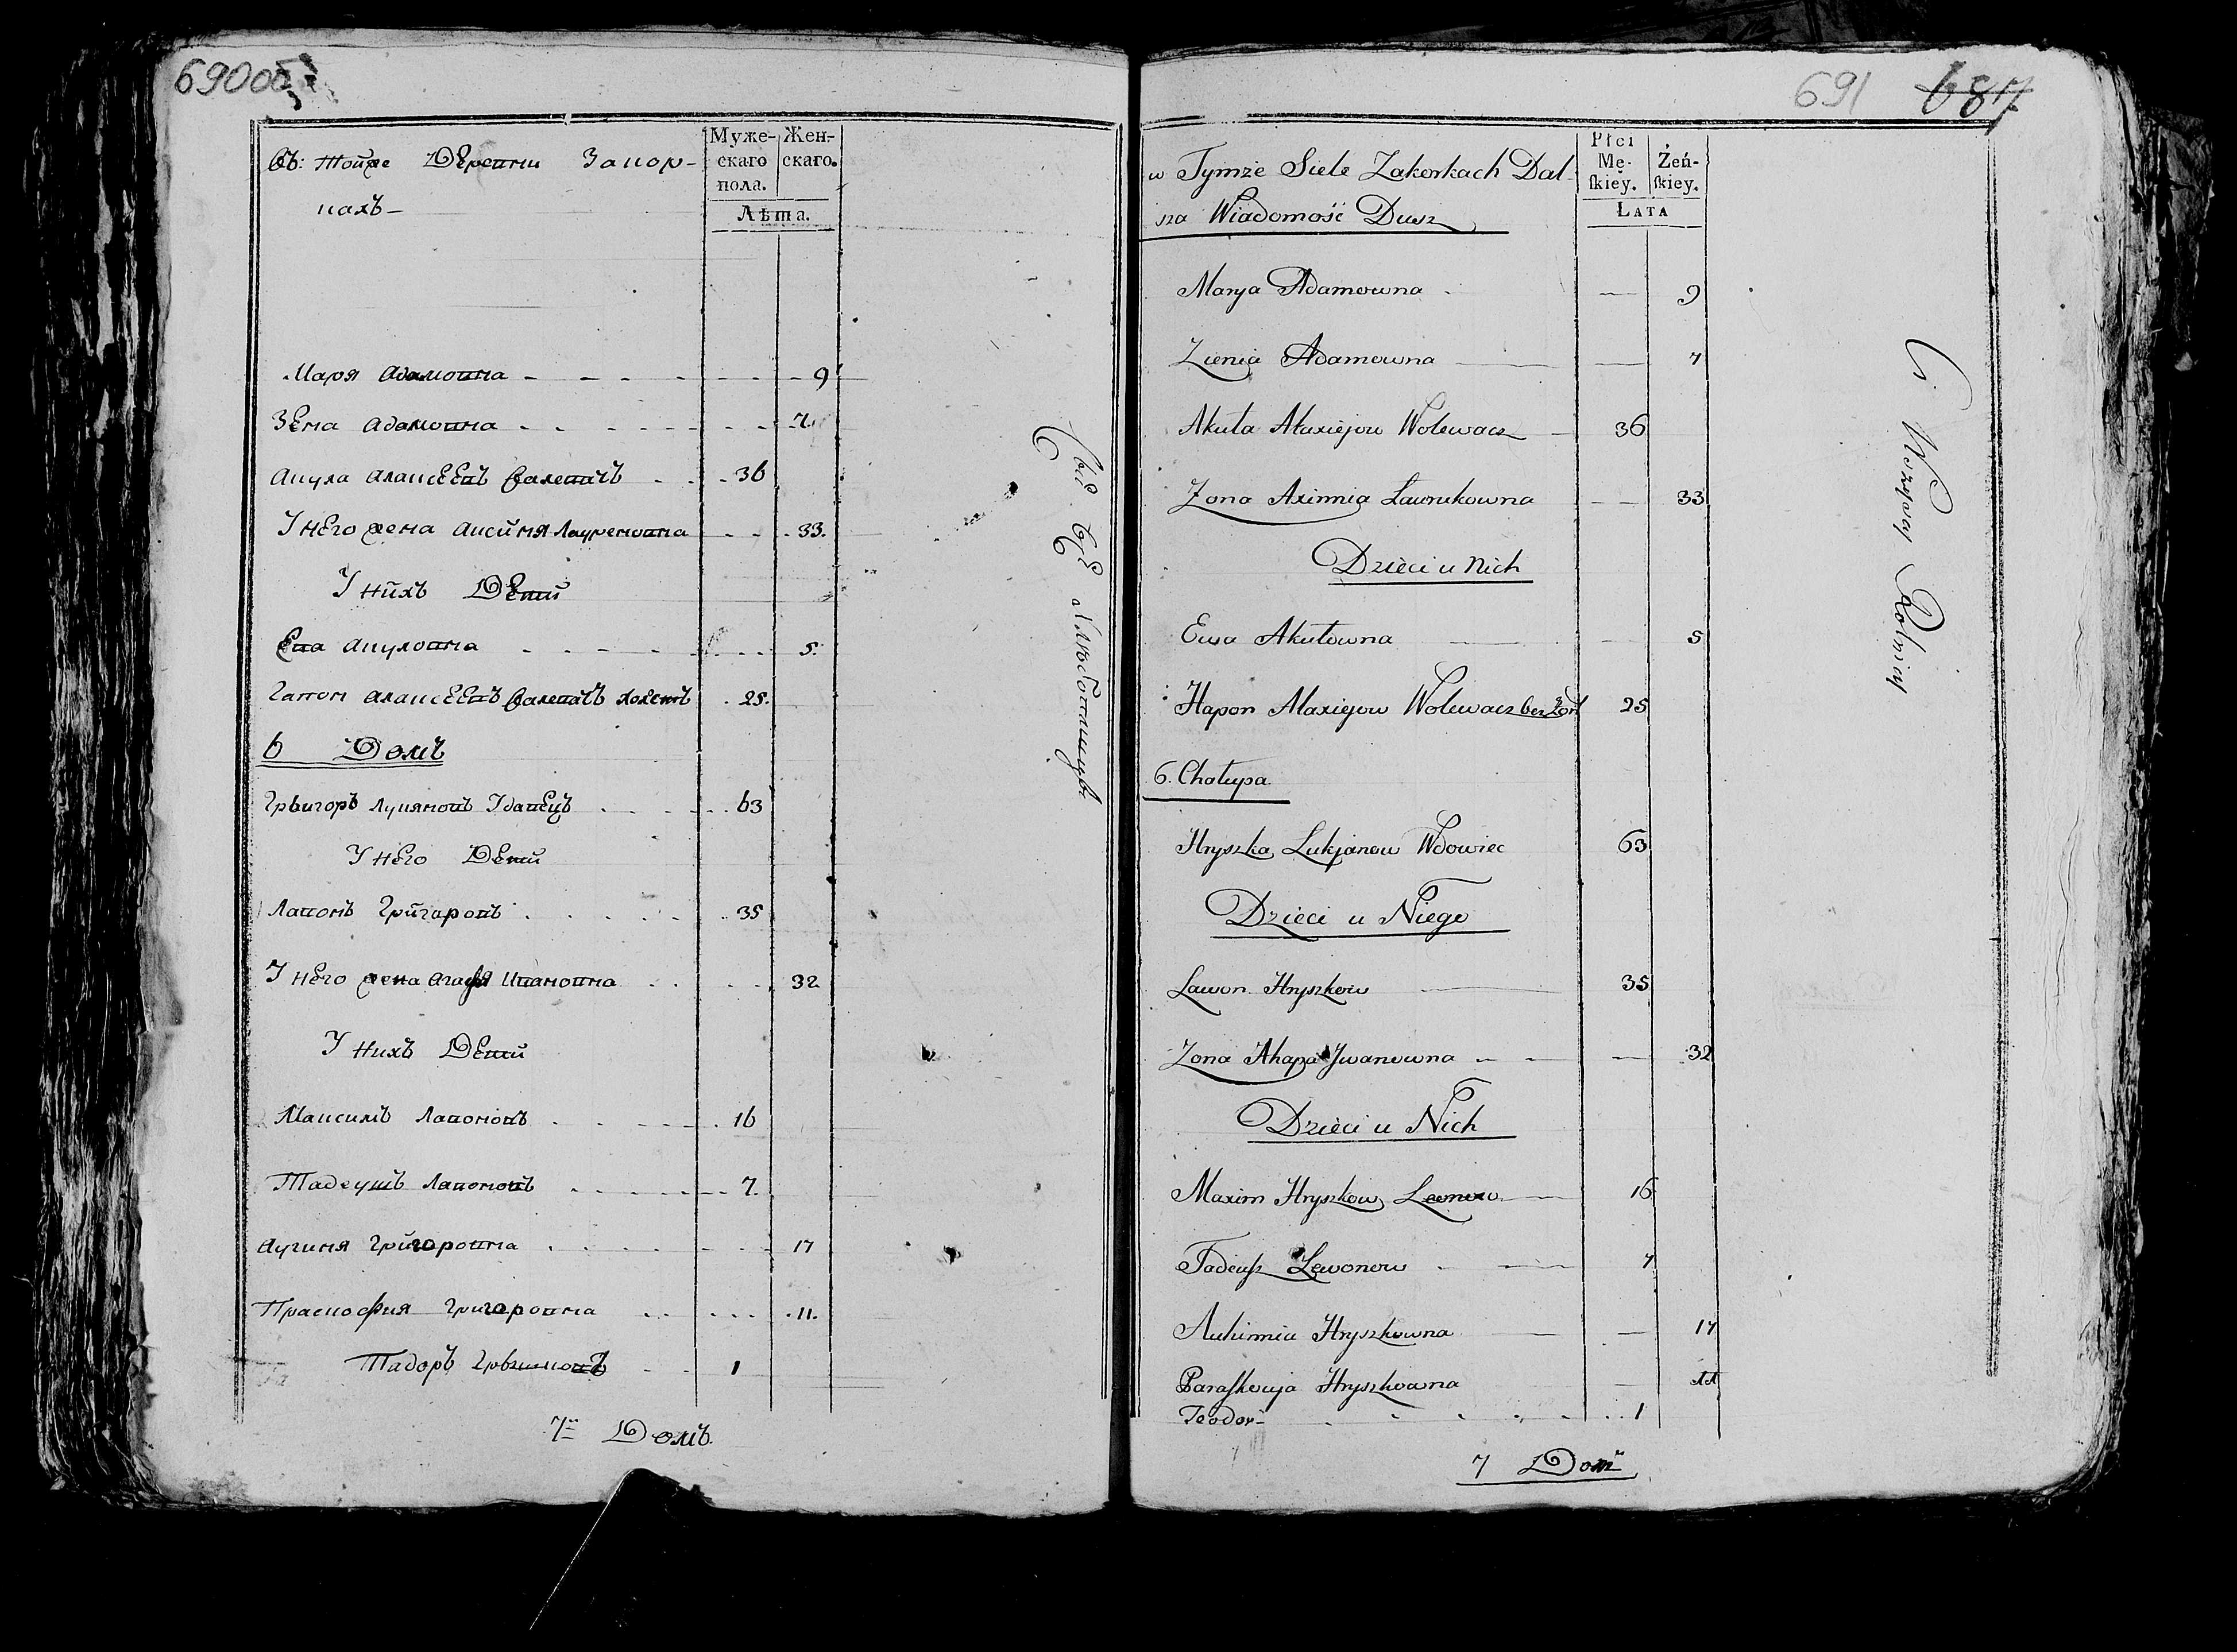 690об
Въ: тойже Деревни Закор-
кахъ
Муже-
скаго
пола.
Жен-
скаго.
Лѣта.
Маря Адамовна 9
Зеня Адамовна 7
Акула Алаксеевъ Валевачъ 36
У Него жена Аксиня Лауреновна 33.
У Нихъ Дети
Ева Акуловна 5.
Гапон Алаксеевъ Валевачъ холостъ 25.
6 Домъ
Грыгоръ Лукяновъ Удавецъ 63
У Него Дети
Лавонъ Григаровъ 35
У Него жена Агафя Ивановна 32
У Нихъ Дети
Максимъ Лавоновъ 16
Тадеушъ Лавоновъ 7.
Аугиня Григоровна 17
Праскофия Григоровна 11.
Тадоръ 1
7й Домъ.
Сыи Всѣ
691 687
w Tymże Siele Zakorkach Dal-
sza Wiadomość Dusz
Płci
Mę-
skiey.
Żeń-
skiey.
Lata
Marya Adamowna 9
Zienia Adamowna 7
Akuła Ałaxiejow Wolewacz 36
Żona Axinnia Ławrukowna 33
Dzieci u Nich
Ewa Akułowna 5
Hapon Ałaxiejow Wolewacz bez Żony 25
6. Chałupa
Hryszka Łukjanow Wdowiec 63
Dzieci u Niego
Ławon Hryszkow 35
Żona Ahapa Jwanowna 32
Dzieci u Nich
Maxim Hryszkow 16
Tadeusz Lewonow 7
Auhinnia Hryszkowna 17
Paraskowja Hryszkowna 11
Teodor 1
7 Dom
Ci Wszyscy Rolnicy